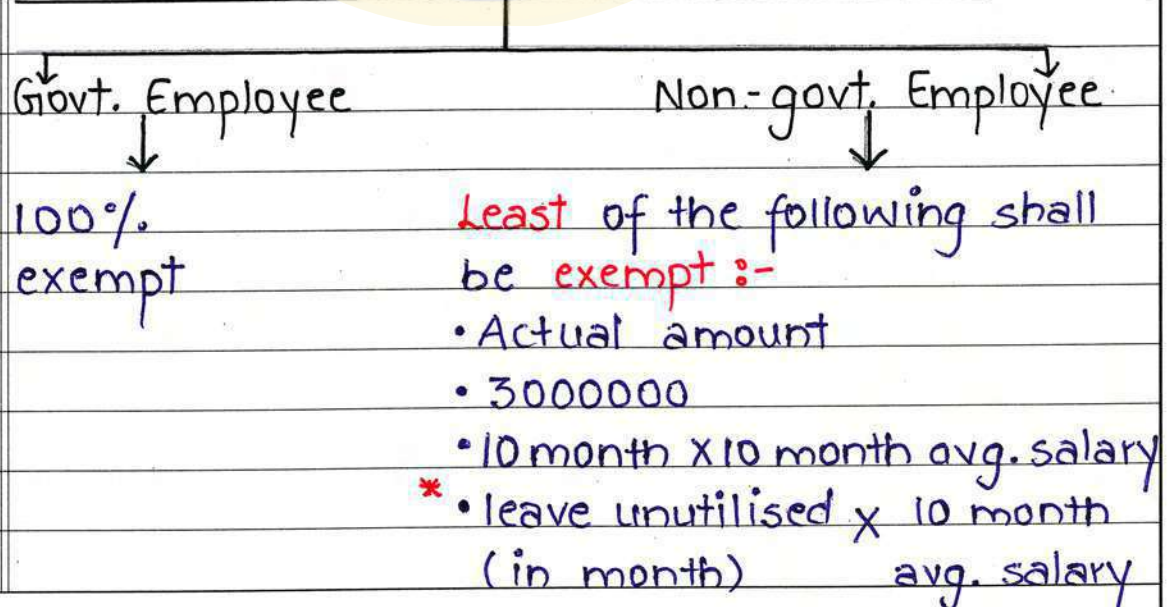 Govt. Employee
Non-govt. Employee
100%
exempt
Least of the following shall
be exempt :-
• Actual amount
• 3000000
• 10 month X 10 month avg. salary
* • leave unutilised x 10 month
(in month) avg. salary